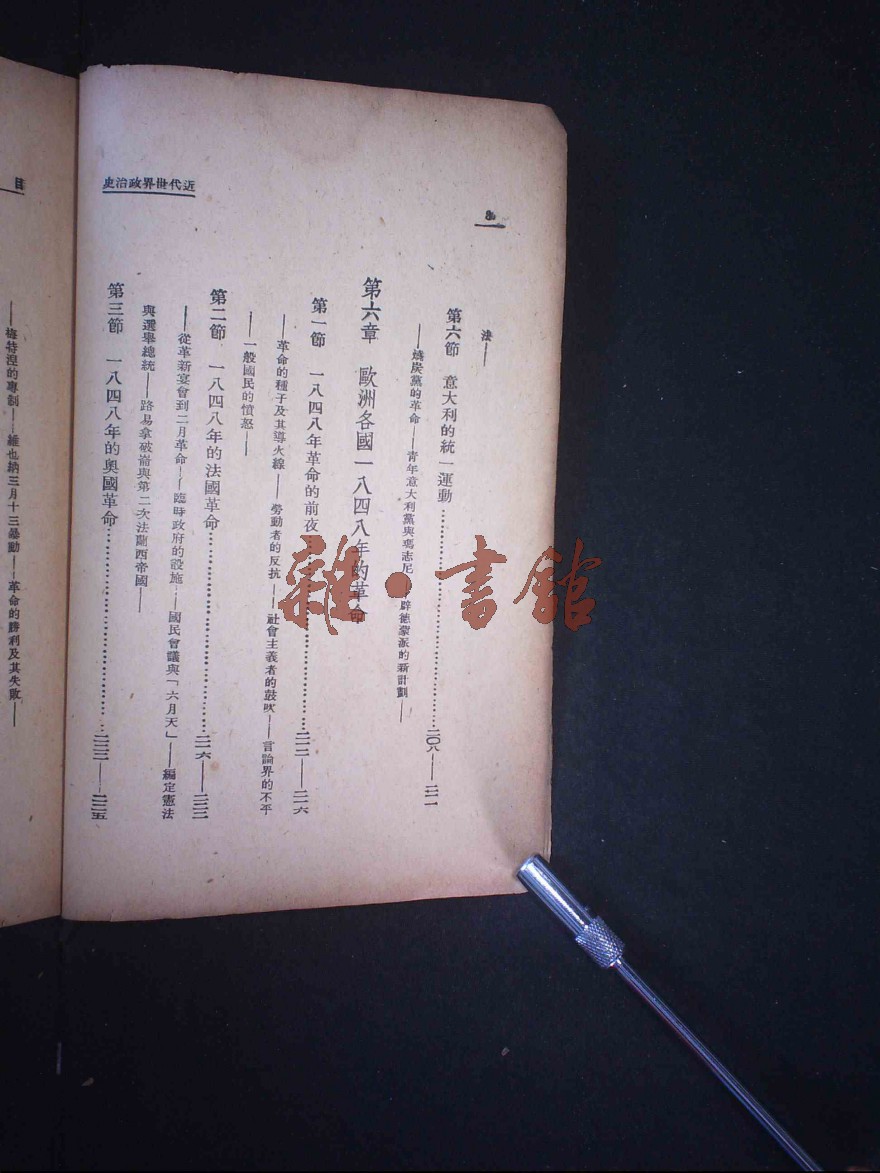 近代世界政治史
8
法——
第六節 意大利的統一運動…………二〇八——二一一
——燒炭黨的革命——青年意大利黨與瑪志尼
辟德蒙派的新計劃——
第六章 歐洲各國一八四八年的革命
第一節 一八四八年革命的前夜…………二一二——二一六
——革命的種子及其導火線——勞動者的反抗——社會主義者的鼓吹——言論界的不平
——一般國民的憤怒——
第二節 一八四八年的法國革命…………二一六——二二二
——從革新宴會到二月革命——臨時政府的設施——國民會議與「六月天」——編定憲法
與選舉總統——路易拿破崙與第二次法蘭西帝國——
第三節 一八四八年的奧國革命…………二二二——二二五
目
——梅特涅的專制——維也納三月十三暴動——革命的勝利及其失敗——
雜·書館